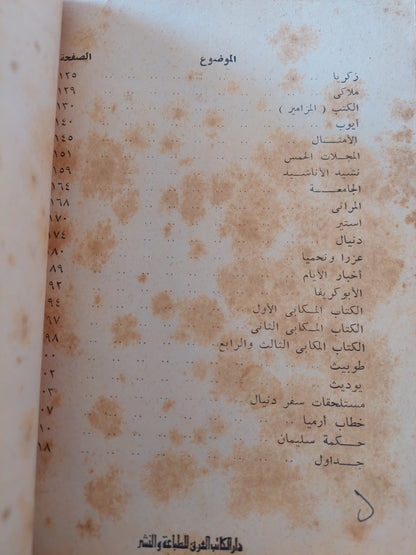 الموضوع الصفحة
زكريا ١٢٥
ملاكى ١٢٩
الكتب ( المزامير ) ١٣٠
أيوب ١٤٠
الأمثال ١٤٥
المجلات الخمس ١٥١
نشيد الأناشيد ١٥٩
الجامعة ١٦٤
المراثى ١٦٨
استير ١٧٠
دنيال ١٧٤
عزرا ونحميا ٨٠
أخبار الأيام ٨٩
الأبوكريفا ٩٢
الكتاب المكابى الأول ٩٤
الكتاب المكابى الثانى ٩٧
الكتاب المكابى الثالث والرابع ٩٨
طوبيث ٠٠
يوديث ٠٢
مستلحقات سفر دنيال ٠٣
خطاب أرميا ٠٧
حكمة سليمان ١٠
جداول ١٨
دار الكاتب العربى للطباعة والنشر